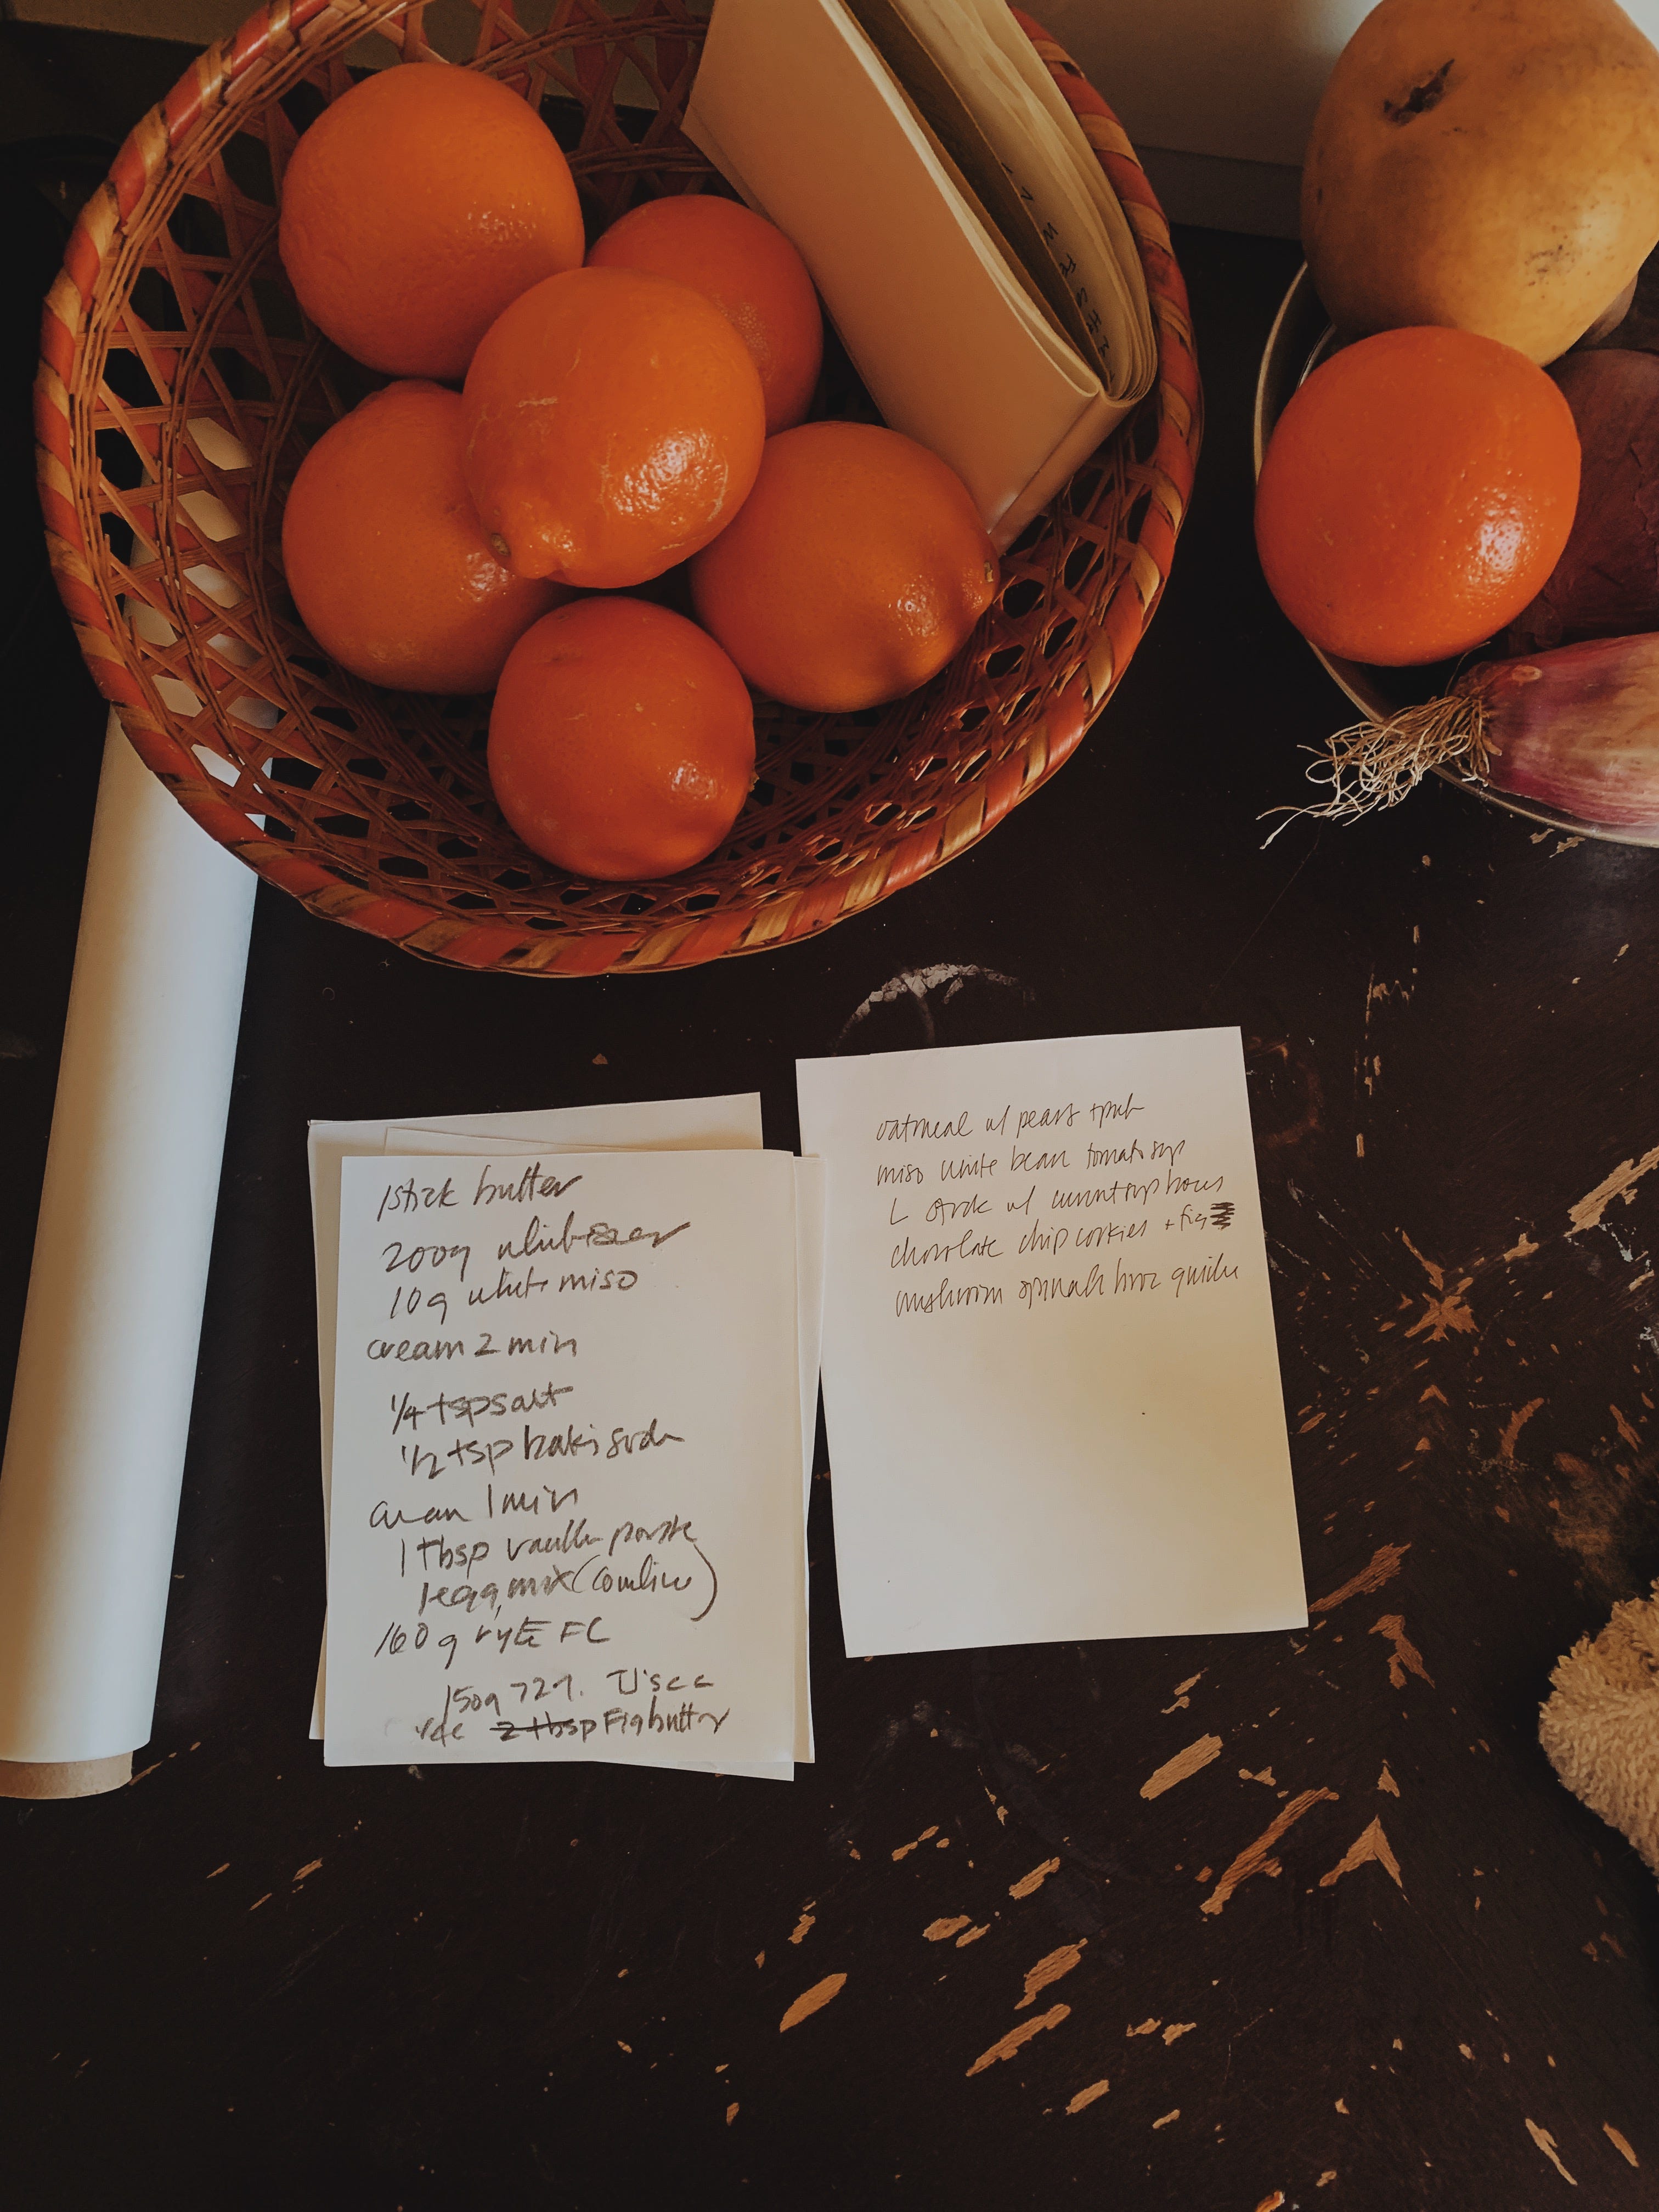 1 stick butter
200g white
10g white miso
cream 2 min
1/4 tsp salt
1/2 tsp baki soda
cream 1 min
1 Tbsp vanilla paste
1 egg, mix (combine)
160 g rye FC
150g 72%
2 tbsp Fig butter
oatmeal w/ pears +
miso white bean tomato soup
L w/
chocolate chip cookies + fig
mushroom spinach quiche